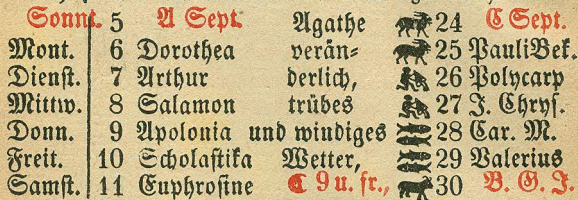 Sonnt. 5 A Sept. Agathe 24 C Sept.
Mont. 6 Dorothea verän- 25 Pauli Bek.
Dienst. 7 Arthur derlich, 26 Polycarp
Mittw. 8 Salamon trübes 27 J. Chrys.
Donn. 9 Apolonia und windiges 28 Car. M.
Freit. 10 Scholastika Wetter, 29 Valerius
Samst. 11 Euphrosine ☾ 9 u. fr., 30 B. G. J.